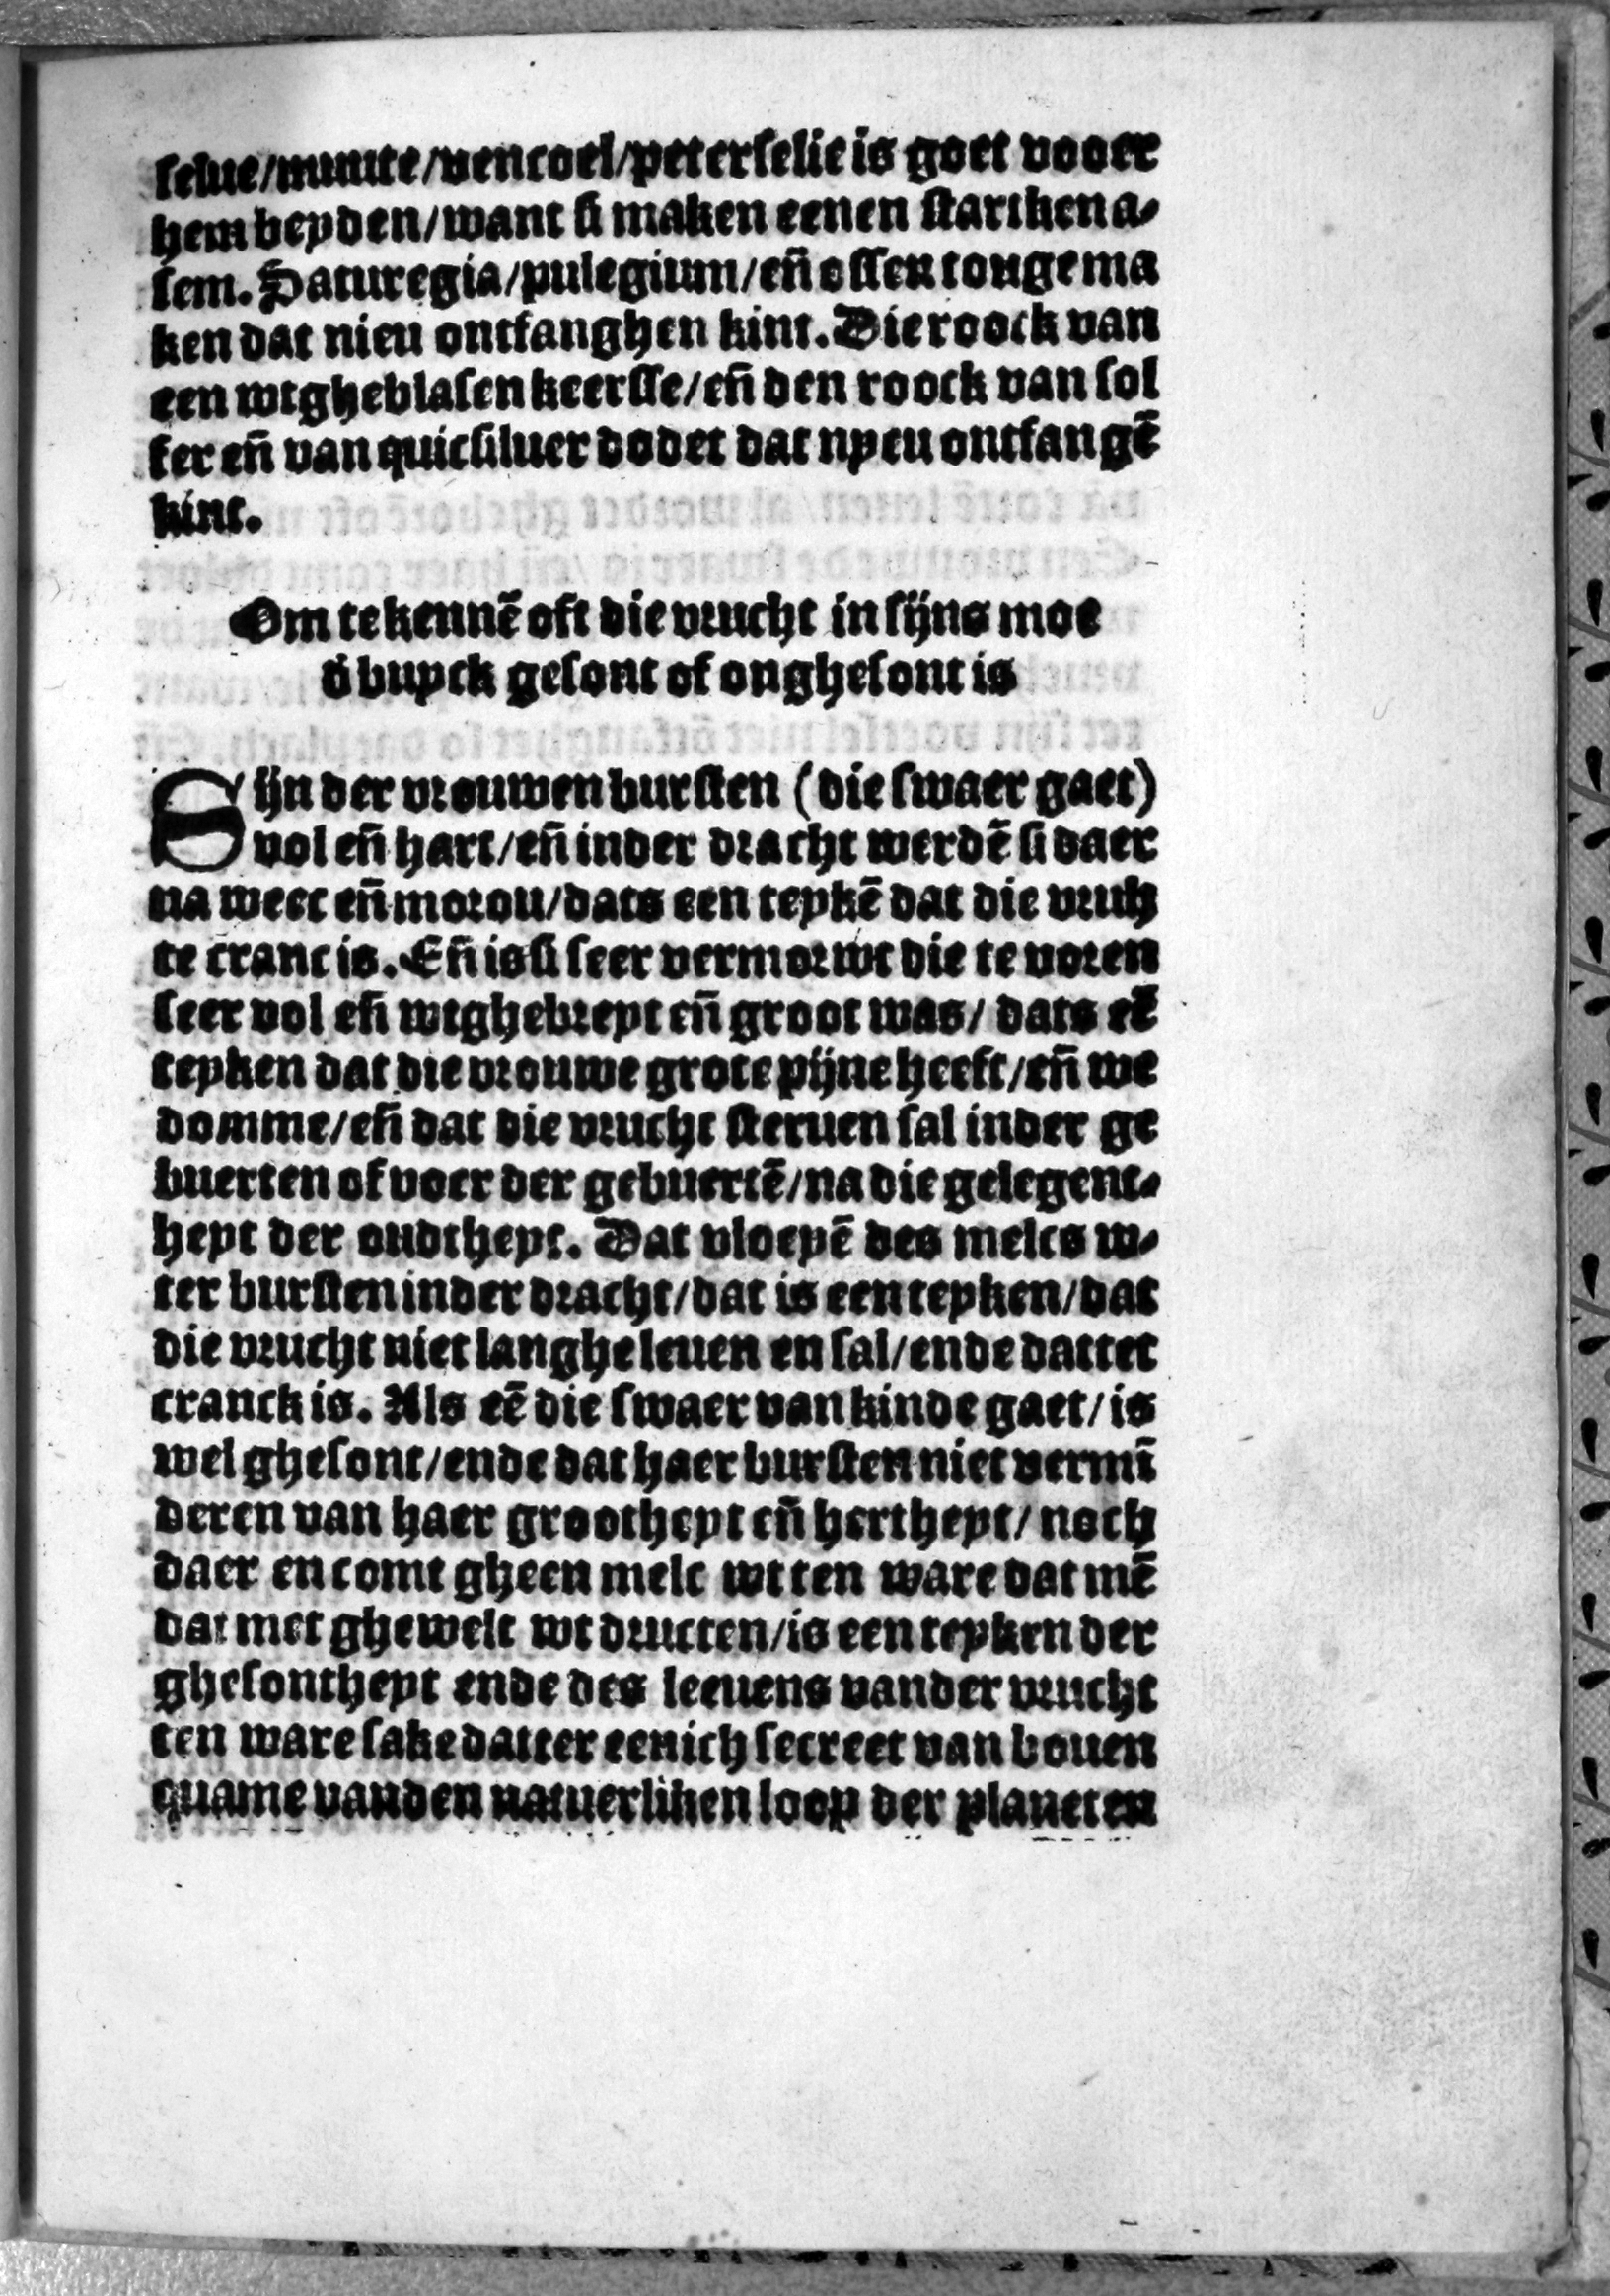 selue/munte/vencoel/peterselie is goet vooer
hem beyden/want si maken eenen starcken a⸗
sem. Saturegia/pulegium/eñ ossen tonge ma
ken dat nieu ontfanghen kint. Die roock van
een wtgheblasen keersse/eñ den roock van sol
fer eñ van quicsiluer dodet dat nyeu ontfangē
kint.
Om te kennē oft die vrucht in sijns moe
d̄ buyck gesont of onghesont is
Sijn der vrouwen bursten (die swaer gaet)
vol eñ hart/eñ inder dracht werdē si daer
na weec eñ morou/dats een teykē dat die vruh
te cranc is. Eñ is si seer vermorwt die te voren
seer vol eñ wtghebreyt eñ groot was/ dats eē
teyken dat die vrouwe grote pijne heeft/eñ we
domme/eñ dat die vrucht steruen sal inder ge
buerten of voer der gebuertē/na die gelegent⸗
heyt der oudtheyt. Dat vloeyē des melcs w⸗
ter bursten inder dracht/dat is een teyken/dat
die vrucht niet langhe leuen en sal/ende dattet
cranck is. Als eē die swaer van kinde gaet/ is
wel ghesont/ende dat haer bursten niet vermī
deren van haer grootheyt eñ hertheyt/ noch
daer en comt gheen melc wt ten ware dat mē
dat met ghewelt wt dructen/is een teyken der
ghesontheyt ende des leeuens vander vrucht
ten ware sake datter eenich secreet van bouen
quame vanden natuerliken loop der planeten